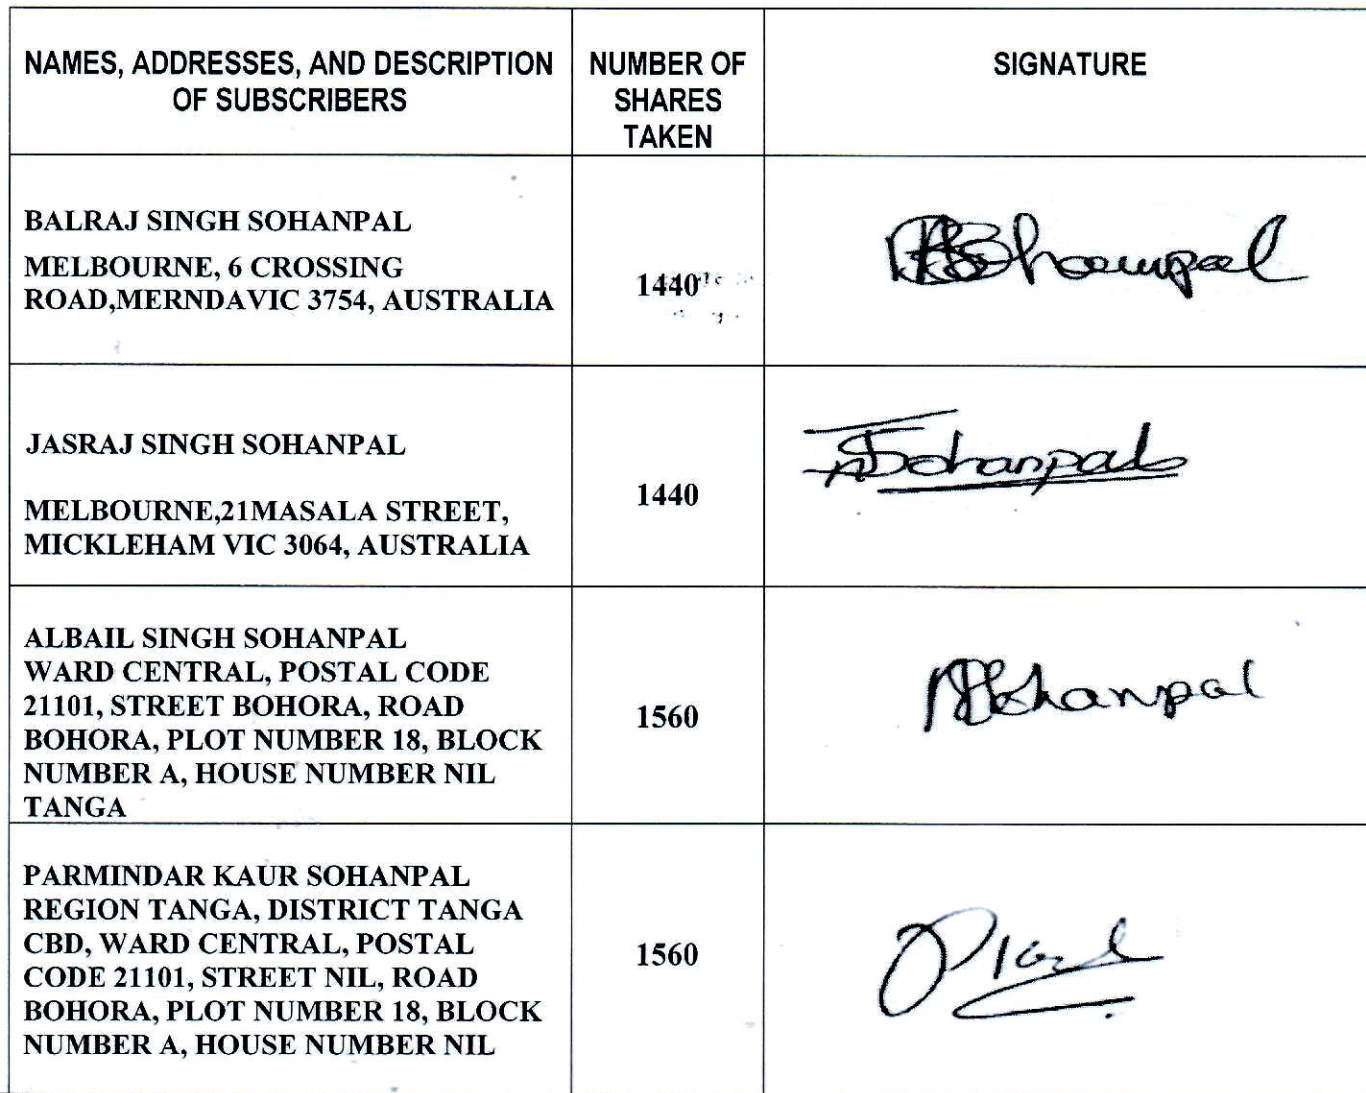 NAMES, ADDRESSES, AND DESCRIPTION
OF SUBSCRIBERS
NUMBER OF
SHARES
TAKEN
SIGNATURE
BALRAJ SINGH SOHANPAL
MELBOURNE, 6 CROSSING
ROAD,MERNDAVIC 3754, AUSTRALIA
1440
JASRAJ SINGH SOHANPAL
MELBOURNE,21MASALA STREET,
MICKLEHAM VIC 3064, AUSTRALIA
1440
ALBAIL SINGH SOHANPAL
WARD CENTRAL, POSTAL CODE
21101, STREET BOHORA, ROAD
BOHORA, PLOT NUMBER 18, BLOCK
NUMBER A, HOUSE NUMBER NIL
TANGA
1560
PARMINDAR KAUR SOHANPAL
REGION TANGA, DISTRICT TANGA
CBD, WARD CENTRAL, POSTAL
CODE 21101, STREET NIL, ROAD
BOHORA, PLOT NUMBER 18, BLOCK
NUMBER A, HOUSE NUMBER NIL
1560